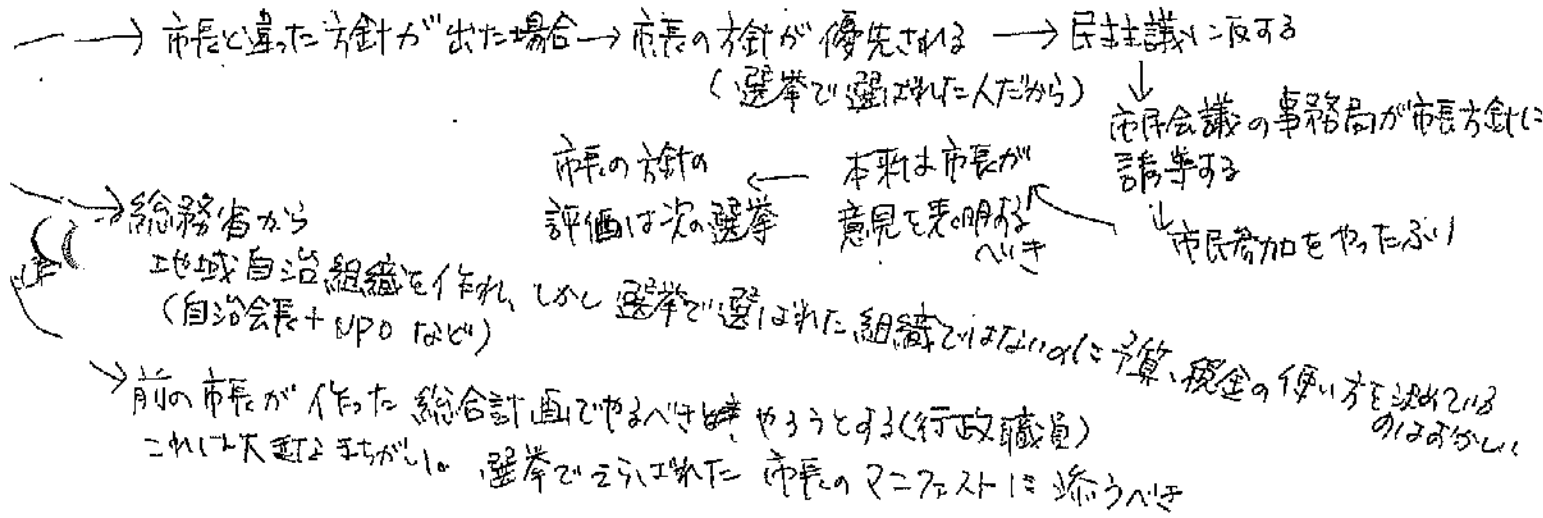 → 市長と違った方針が出た場合 → 市長の方針が優先される → 民主主義に反する
(選挙で選ばれた人だから)
↓
市民会議の事務局が市長方針に
誘導する
↓
市民参加をやったふり
本来は市長が
意見を表明する
べき
←
市長の方針の
評価は次の選挙
→ 総務省から
地域自治組織を作れ、しかし選挙で選ばれた組織ではないのに予算、税金の使い方を決めている
のはおかしい
(自治会長+NPOなど)
→ 前の市長が作った総合計画でやるべき やろうとする(行政職員)
これは大きなまちがい。選挙でえらばれた市長のマニフェストに添うべき